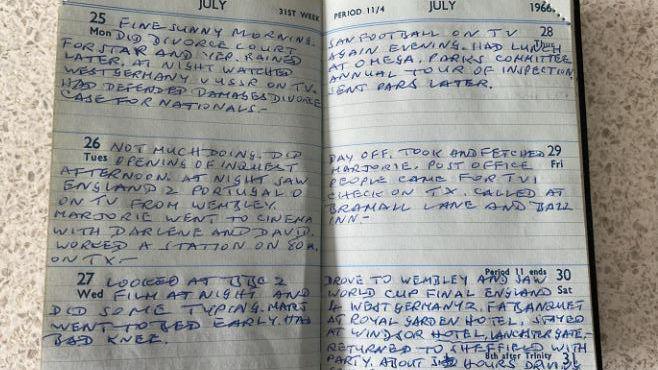 JULY
31ST WEEK
25
Mon
FINE SUNNY MORNING.
DID DIVORCE COURT
FOR STAR AND YEP. RAINED
LATER. AT NIGHT WATCHED
WEST GERMANY V USSR ON TV.
HAD DEFENDED DAMAGES DIVORCE
CASE FOR NATIONALS.-
26
Tues
NOT MUCH DOING. DID
OPENING OF INQUEST
AFTERNOON. AT NIGHT SAW
ENGLAND 2 PORTUGAL 0
ON TV FROM WEMBLEY.
MARJORIE WENT TO CINEMA
WITH DARLENE AND DAVID.
WORKED A STATION ON 80M.
ON TX.-
27
Wed
LOOKED AT BBC 2
FILM AT NIGHT AND
DID SOME TYPING. MARJ
WENT TO BED EARLY. HAS
BAD KNEE.
PERIOD 11/4
JULY
1966
28
SAW FOOTBALL ON TV
AGAIN EVENING. HAD LUNCH
AT OMEGA. PARKS COMMITTEE
ANNUAL TOUR OF INSPECTION
SENT PARS LATER.
29
Fri
DAY OFF. TOOK AND FETCHED
MARJORIE. POST OFFICE
PEOPLE CAME FOR TVI
CHECK ON TX. CALLED AT
BRAMALL LANE AND BALL
INN.-
Period 11 ends
30
Sat
DROVE TO WEMBLEY AND SAW
WORLD CUP FINAL ENGLAND
4 WEST GERMANY 2. FA BANQUET
AT ROYAL GARDEN HOTEL. STAYED
AT WINDSOR HOTEL, LANCASTER GATE.-
8th after Trinity
31
RETURNED TO SHEFFIELD WITH
PARTY. ABOUT HOURS DRIVING